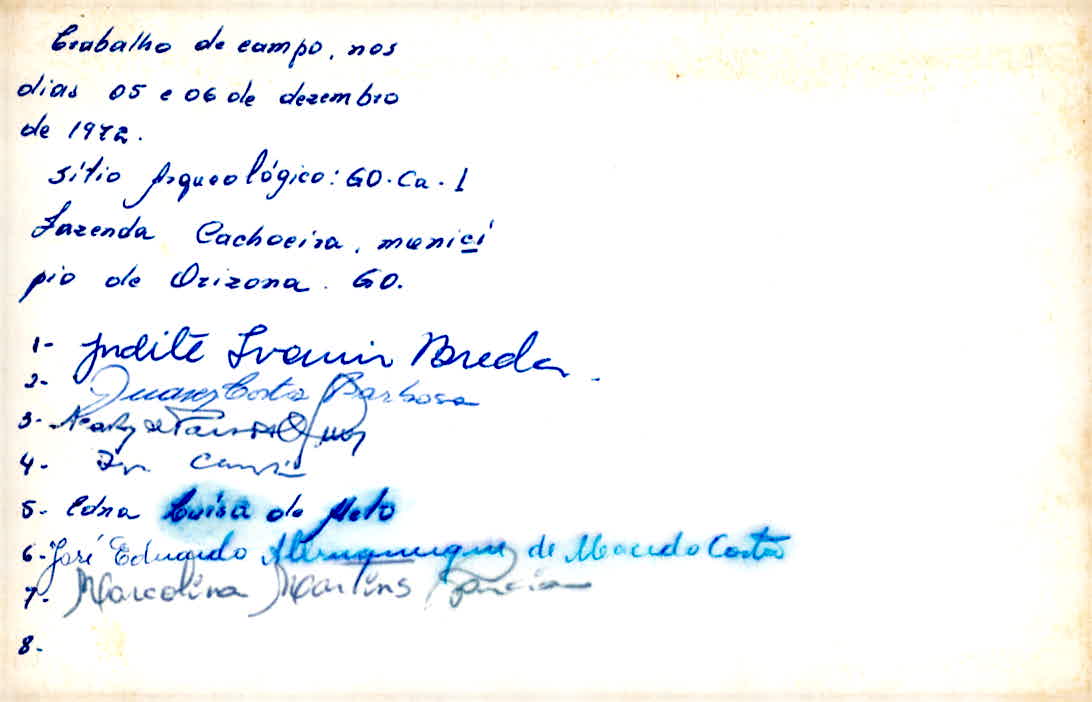 Trabalho de campo, nos
dias 05 e 06 de dezembro
de 1972.
Sítio Arqueológico: GO.Ca.1
Fazenda Cachoeira, municí
pio de Orizona. GO.
1- Judite Ivanir Breda.
2- Juarez Costa Barbosa
3-
4-
5- Edna Luisa de Melo
6- José Eduardo Albuquerque de Macedo Costa
7- Marcolina Martins Garcia
8-